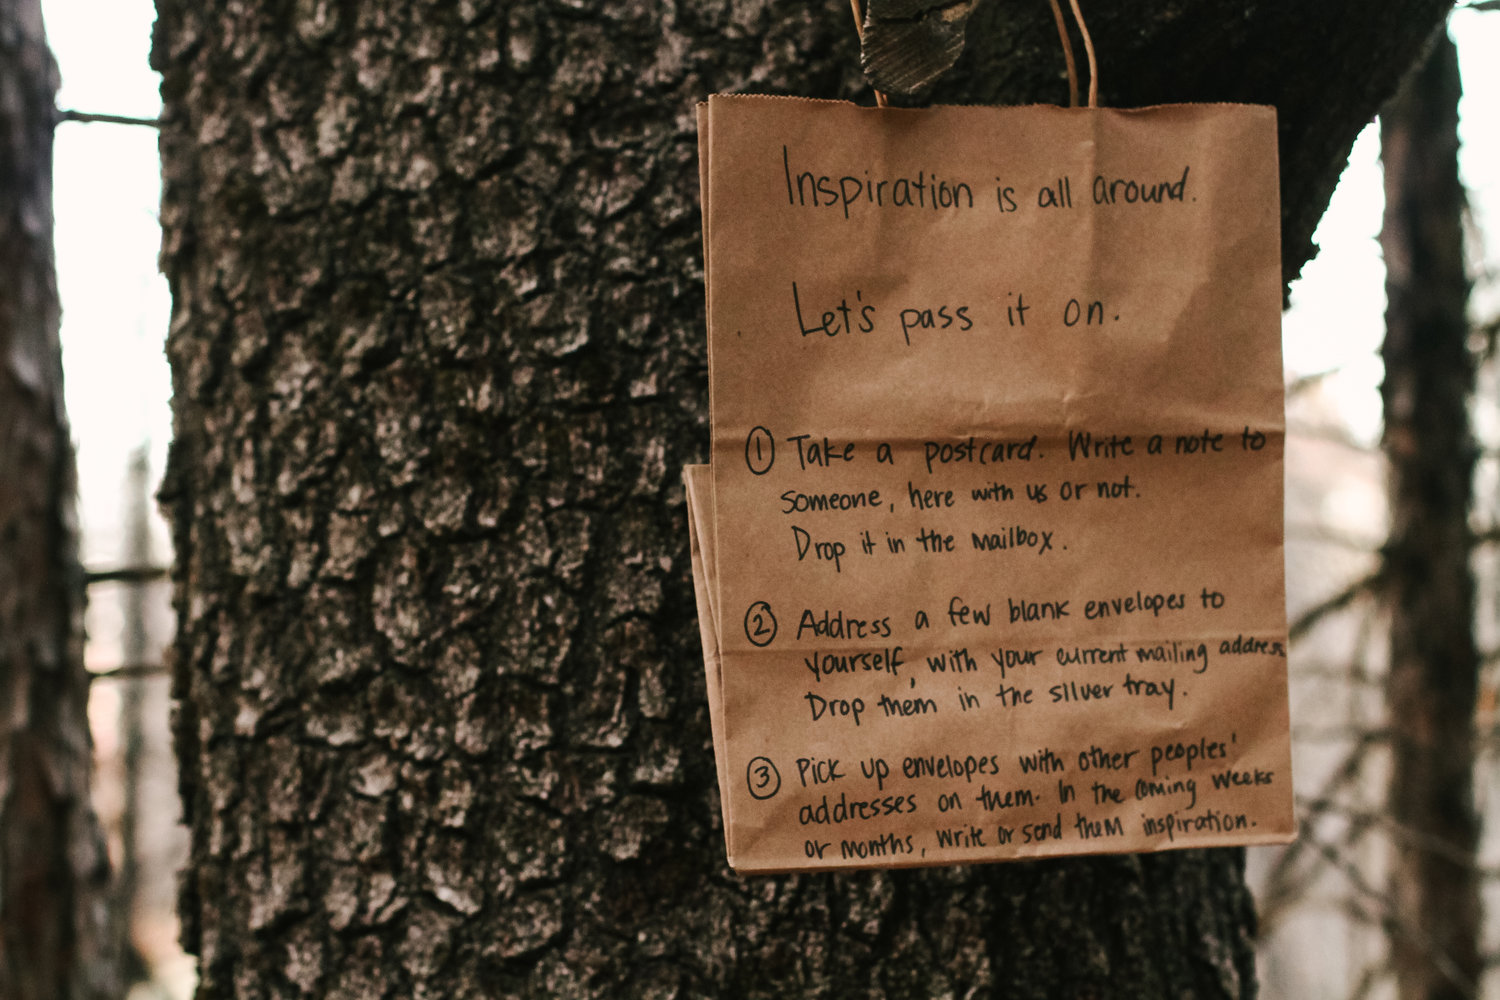 Inspiration is all around.
Let's pass it on.
① Take a postcard. Write a note to
someone, here with us or not.
Drop it in the mailbox.
② Address a few blank envelopes to
yourself, with your current mailing address.
Drop them in the silver tray.
③ Pick up envelopes with other peoples'
addresses on them. In the coming weeks
or months, write or send them inspiration.